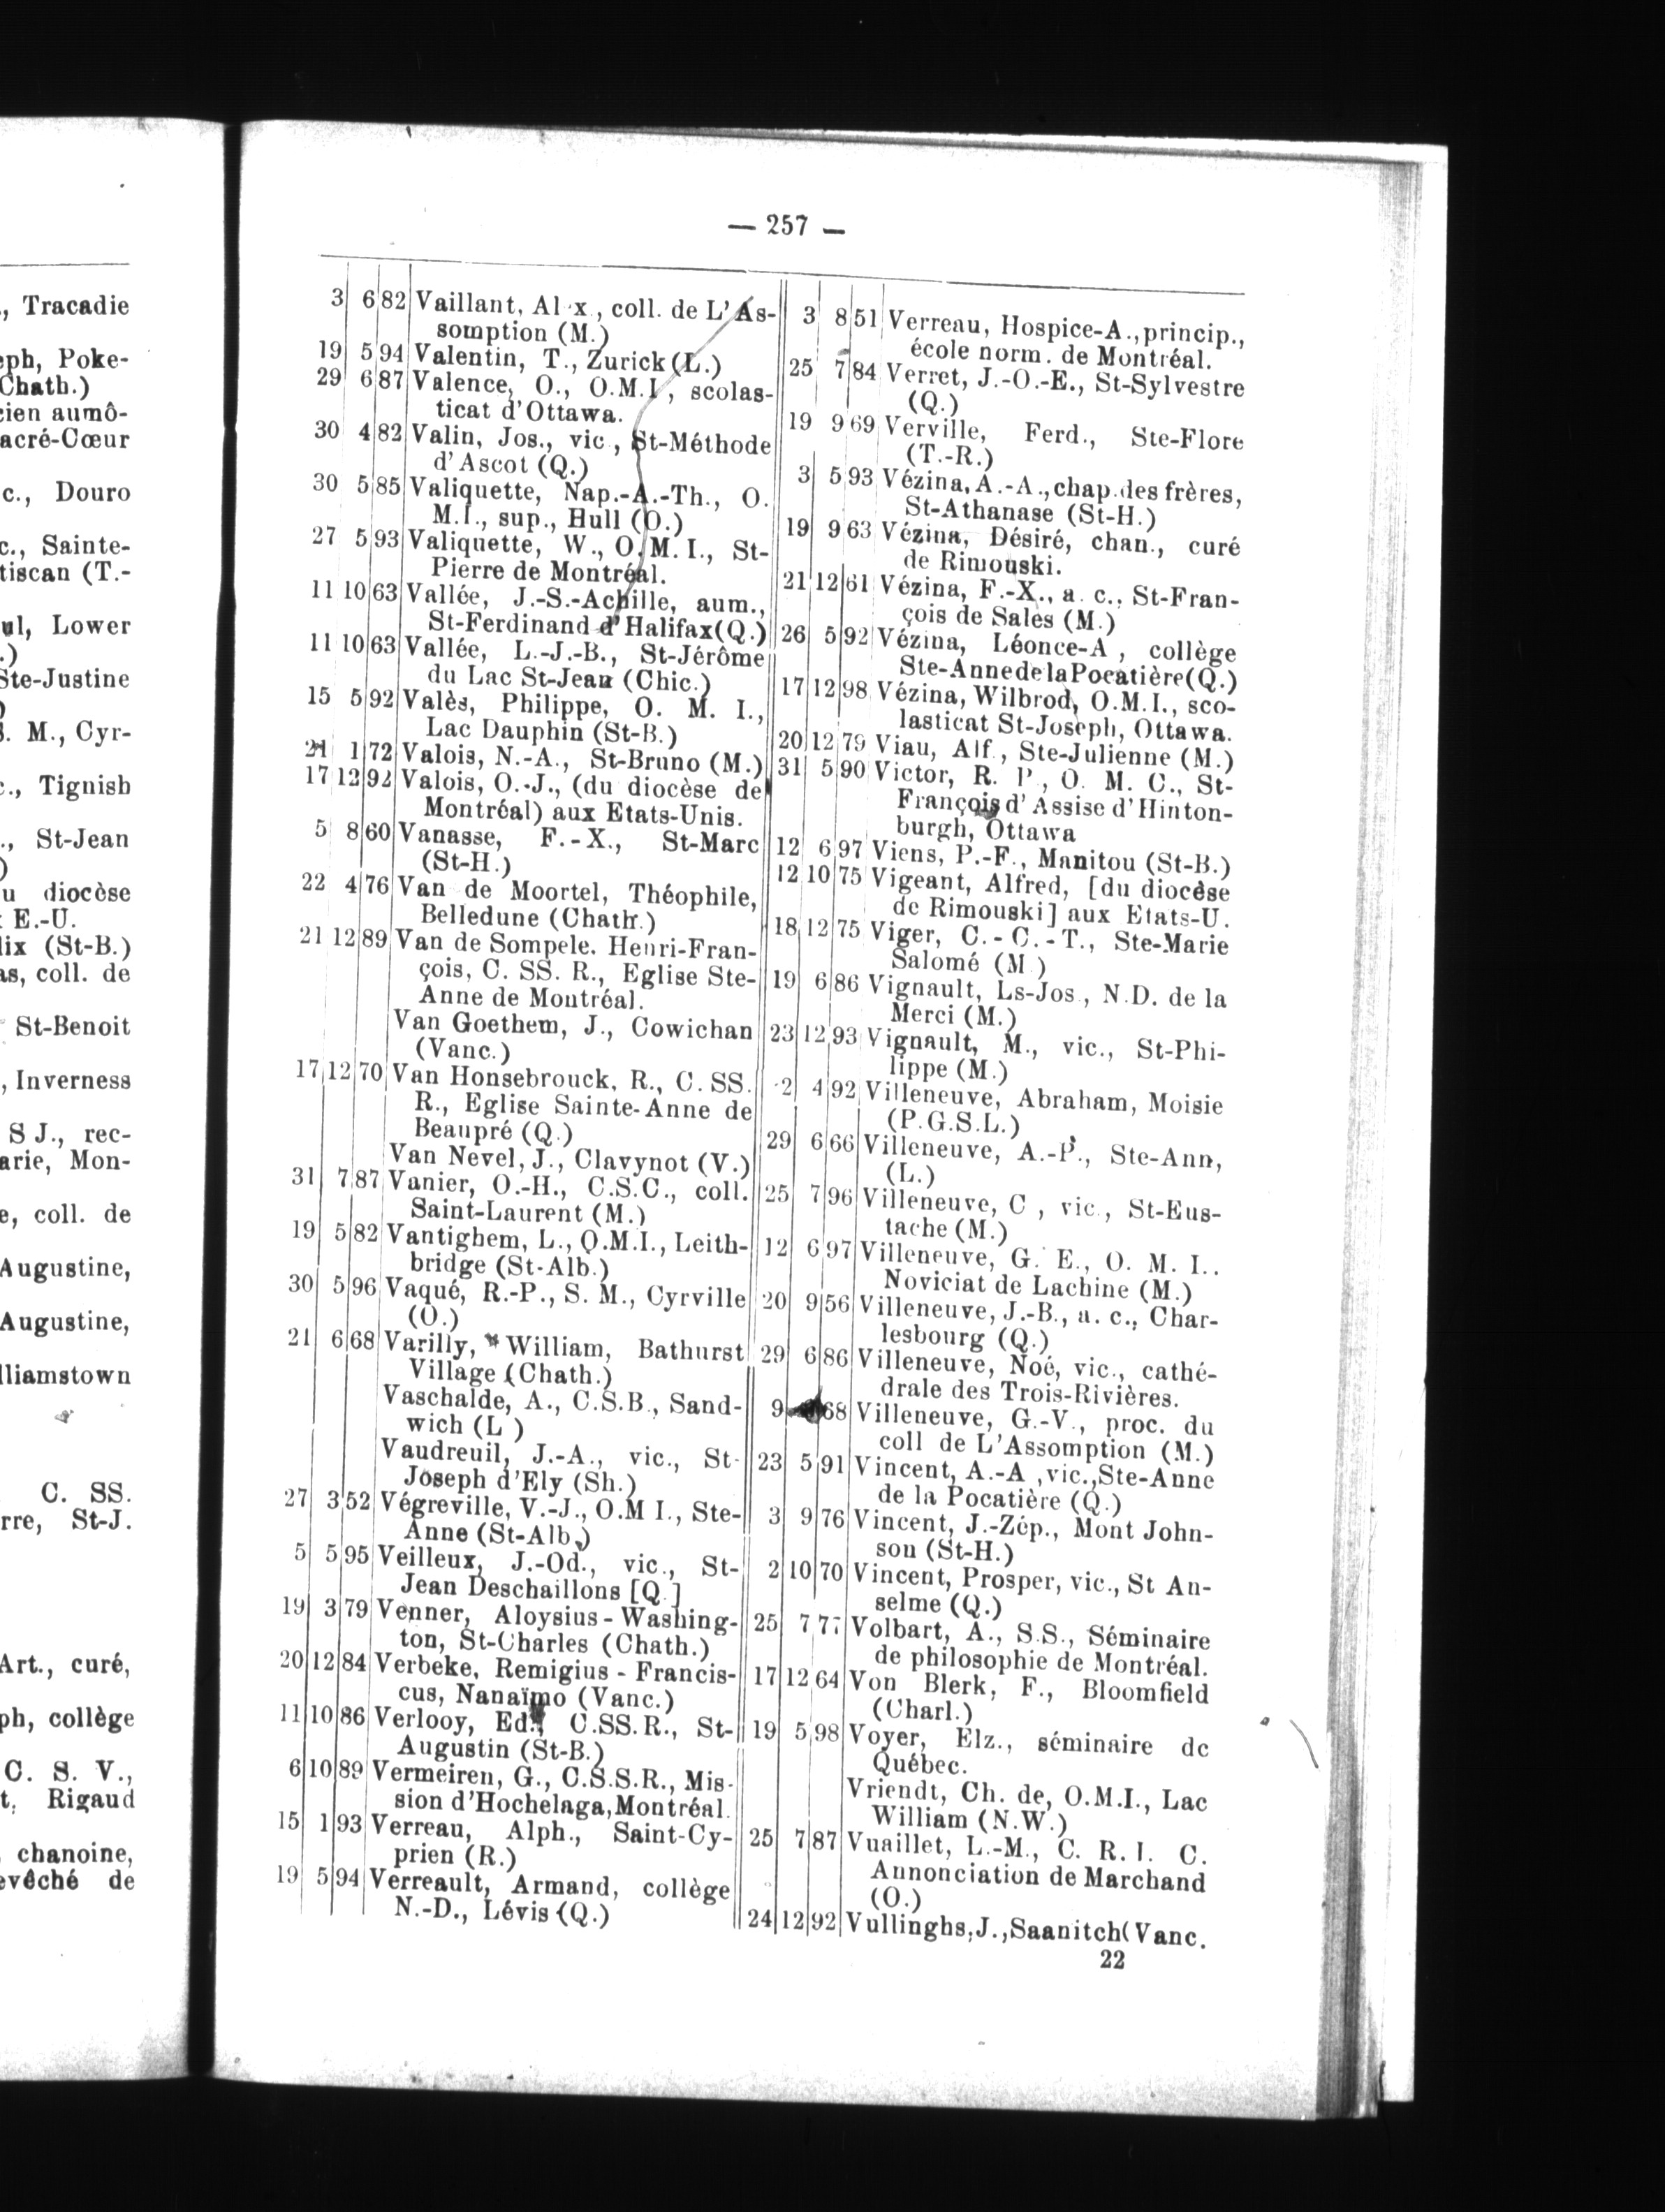 ., Tracadie
eph, Poke-
Chath.)
cien aumô-
acré-Cœur
c., Douro
c., Sainte-
tiscan (T.-
ul, Lower
.)
Ste-Justine
)
S. M., Cyr-
c., Tignish
., St-Jean
)
u diocèse
: E.-U.
lix (St-B.)
as, coll. de
St-Benoit
, Inverness
S J., rec-
arie, Mon-
e, coll. de
Augustine,
Augustine,
lliamstown
C. SS.
rre, St-J.
Art., curé,
ph, collège
C. S. V.,
t, Rigaud
chanoine,
evêché de
— 257 —
3 6 82 Vaillant, Al x., coll. de L'As-
somption (M.)
19 5 94 Valentin, T., Zurick (L.)
29 6 87 Valence, O., O.M.I , scolas-
ticat d'Ottawa.
30 4 82 Valin, Jos., vic , St-Méthode
d'Ascot (Q.)
30 5 85 Valiquette, Nap.-A.-Th., O.
M.I., sup., Hull (O.)
27 5 93 Valiquette, W., O.M.I., St-
Pierre de Montréal.
11 10 63 Vallée, J.-S.-Achille, aum.,
St-Ferdinand d'Halifax (Q.)
11 10 63 Vallée, L.-J.-B., St-Jérôme
du Lac St-Jean (Chic.)
15 5 92 Valès, Philippe, O. M. I.,
Lac Dauphin (St-B.)
21 1 72 Valois, N.-A., St-Bruno (M.)
17 12 92 Valois, O.-J., (du diocèse de
Montréal) aux Etats-Unis.
5 8 60 Vanasse, F.-X., St-Marc
(St-H.)
22 4 76 Van de Moortel, Théophile,
Belledune (Chath.)
21 12 89 Van de Sompele. Henri-Fran-
çois, C. SS. R., Eglise Ste-
Anne de Montréal.
Van Goethem, J., Cowichan
(Vanc.)
17 12 70 Van Honsebrouck, R., C. SS.
R., Eglise Sainte-Anne de
Beaupré (Q.)
Van Nevel, J., Clavynot (V.)
31 7 87 Vanier, O.-H., C.S.C., coll.
Saint-Laurent (M.)
19 5 82 Vantighem, L., O.M.I., Leith-
bridge (St-Alb.)
30 5 96 Vaqué, R.-P., S. M., Cyrville
(O.)
21 6 68 Varilly, William, Bathurst
Village (Chath.)
Vaschalde, A., C.S.B., Sand-
wich (L )
Vaudreuil, J.-A., vic., St-
Joseph d'Ely (Sh.)
27 3 52 Végreville, V.-J., O.M I., Ste-
Anne (St-Alb.)
5 5 95 Veilleux, J.-Od., vic., St-
Jean Deschaillons [Q.]
19 3 79 Venner, Aloysius-Washing-
ton, St-Charles (Chath.)
20 12 84 Verbeke, Remigius-Francis-
cus, Nanaïmo (Vanc.)
11 10 86 Verlooy, Ed., C.SS.R., St-
Augustin (St-B.)
6 10 89 Vermeiren, G., C.S.S.R., Mis-
sion d'Hochelaga, Montréal.
15 1 93 Verreau, Alph., Saint-Cy-
prien (R.)
19 5 94 Verreault, Armand, collège
N.-D., Lévis (Q.)
3 8 51 Verreau, Hospice-A., princip.,
école norm. de Montréal.
25 7 84 Verret, J.-O.-E., St-Sylvestre
(Q.)
19 9 69 Verville, Ferd., Ste-Flore
(T.-R.)
3 5 93 Vézina, A.-A., chap. des frères,
St-Athanase (St-H.)
19 9 63 Vézina, Désiré, chan., curé
de Rimouski.
21 12 61 Vézina, F.-X., a. c., St-Fran-
çois de Sales (M.)
26 5 92 Vézina, Léonce-A , collège
Ste-Anne de la Pocatière (Q.)
17 12 98 Vézina, Wilbrod, O.M.I., sco-
lasticat St-Joseph, Ottawa.
20 12 79 Viau, Alf., Ste-Julienne (M.)
31 5 90 Victor, R. P , O. M. C., St-
François d'Assise d'Hinton-
burgh, Ottawa
12 6 97 Viens, P.-F., Manitou (St-B.)
12 10 75 Vigeant, Alfred, [du diocèse
de Rimouski] aux Etats-U.
18 12 75 Viger, C.-C.-T., Ste-Marie
Salomé (M.)
19 6 86 Vignault, Ls-Jos., N.D. de la
Merci (M.)
23 12 93 Vignault, M., vic., St-Phi-
lippe (M.)
2 4 92 Villeneuve, Abraham, Moisie
(P.G.S.L.)
29 6 66 Villeneuve, A.-P., Ste-Ann,
(L.)
25 7 96 Villeneuve, C , vic., St-Eus-
tache (M.)
12 6 97 Villeneuve, G. E., O. M. I..
Noviciat de Lachine (M.)
20 9 56 Villeneuve, J.-B., a. c., Char-
lesbourg (Q.)
29 6 86 Villeneuve, Noé, vic., cathé-
drale des Trois-Rivières.
9 68 Villeneuve, G.-V., proc. du
coll de L'Assomption (M.)
23 5 91 Vincent, A.-A , vic., Ste-Anne
de la Pocatière (Q.)
3 9 76 Vincent, J.-Zép., Mont John-
son (St-H.)
2 10 70 Vincent, Prosper, vic., St An-
selme (Q.)
25 7 77 Volbart, A., S.S., Séminaire
de philosophie de Montréal.
17 12 64 Von Blerk, F., Bloomfield
(Charl.)
19 5 98 Voyer, Elz., séminaire de
Québec.
Vriendt, Ch. de, O.M.I., Lac
William (N.W.)
25 7 87 Vuaillet, L.-M., C. R. I. C.
Annonciation de Marchand
(O.)
24 12 92 Vullinghs, J., Saanitch (Vanc.
22